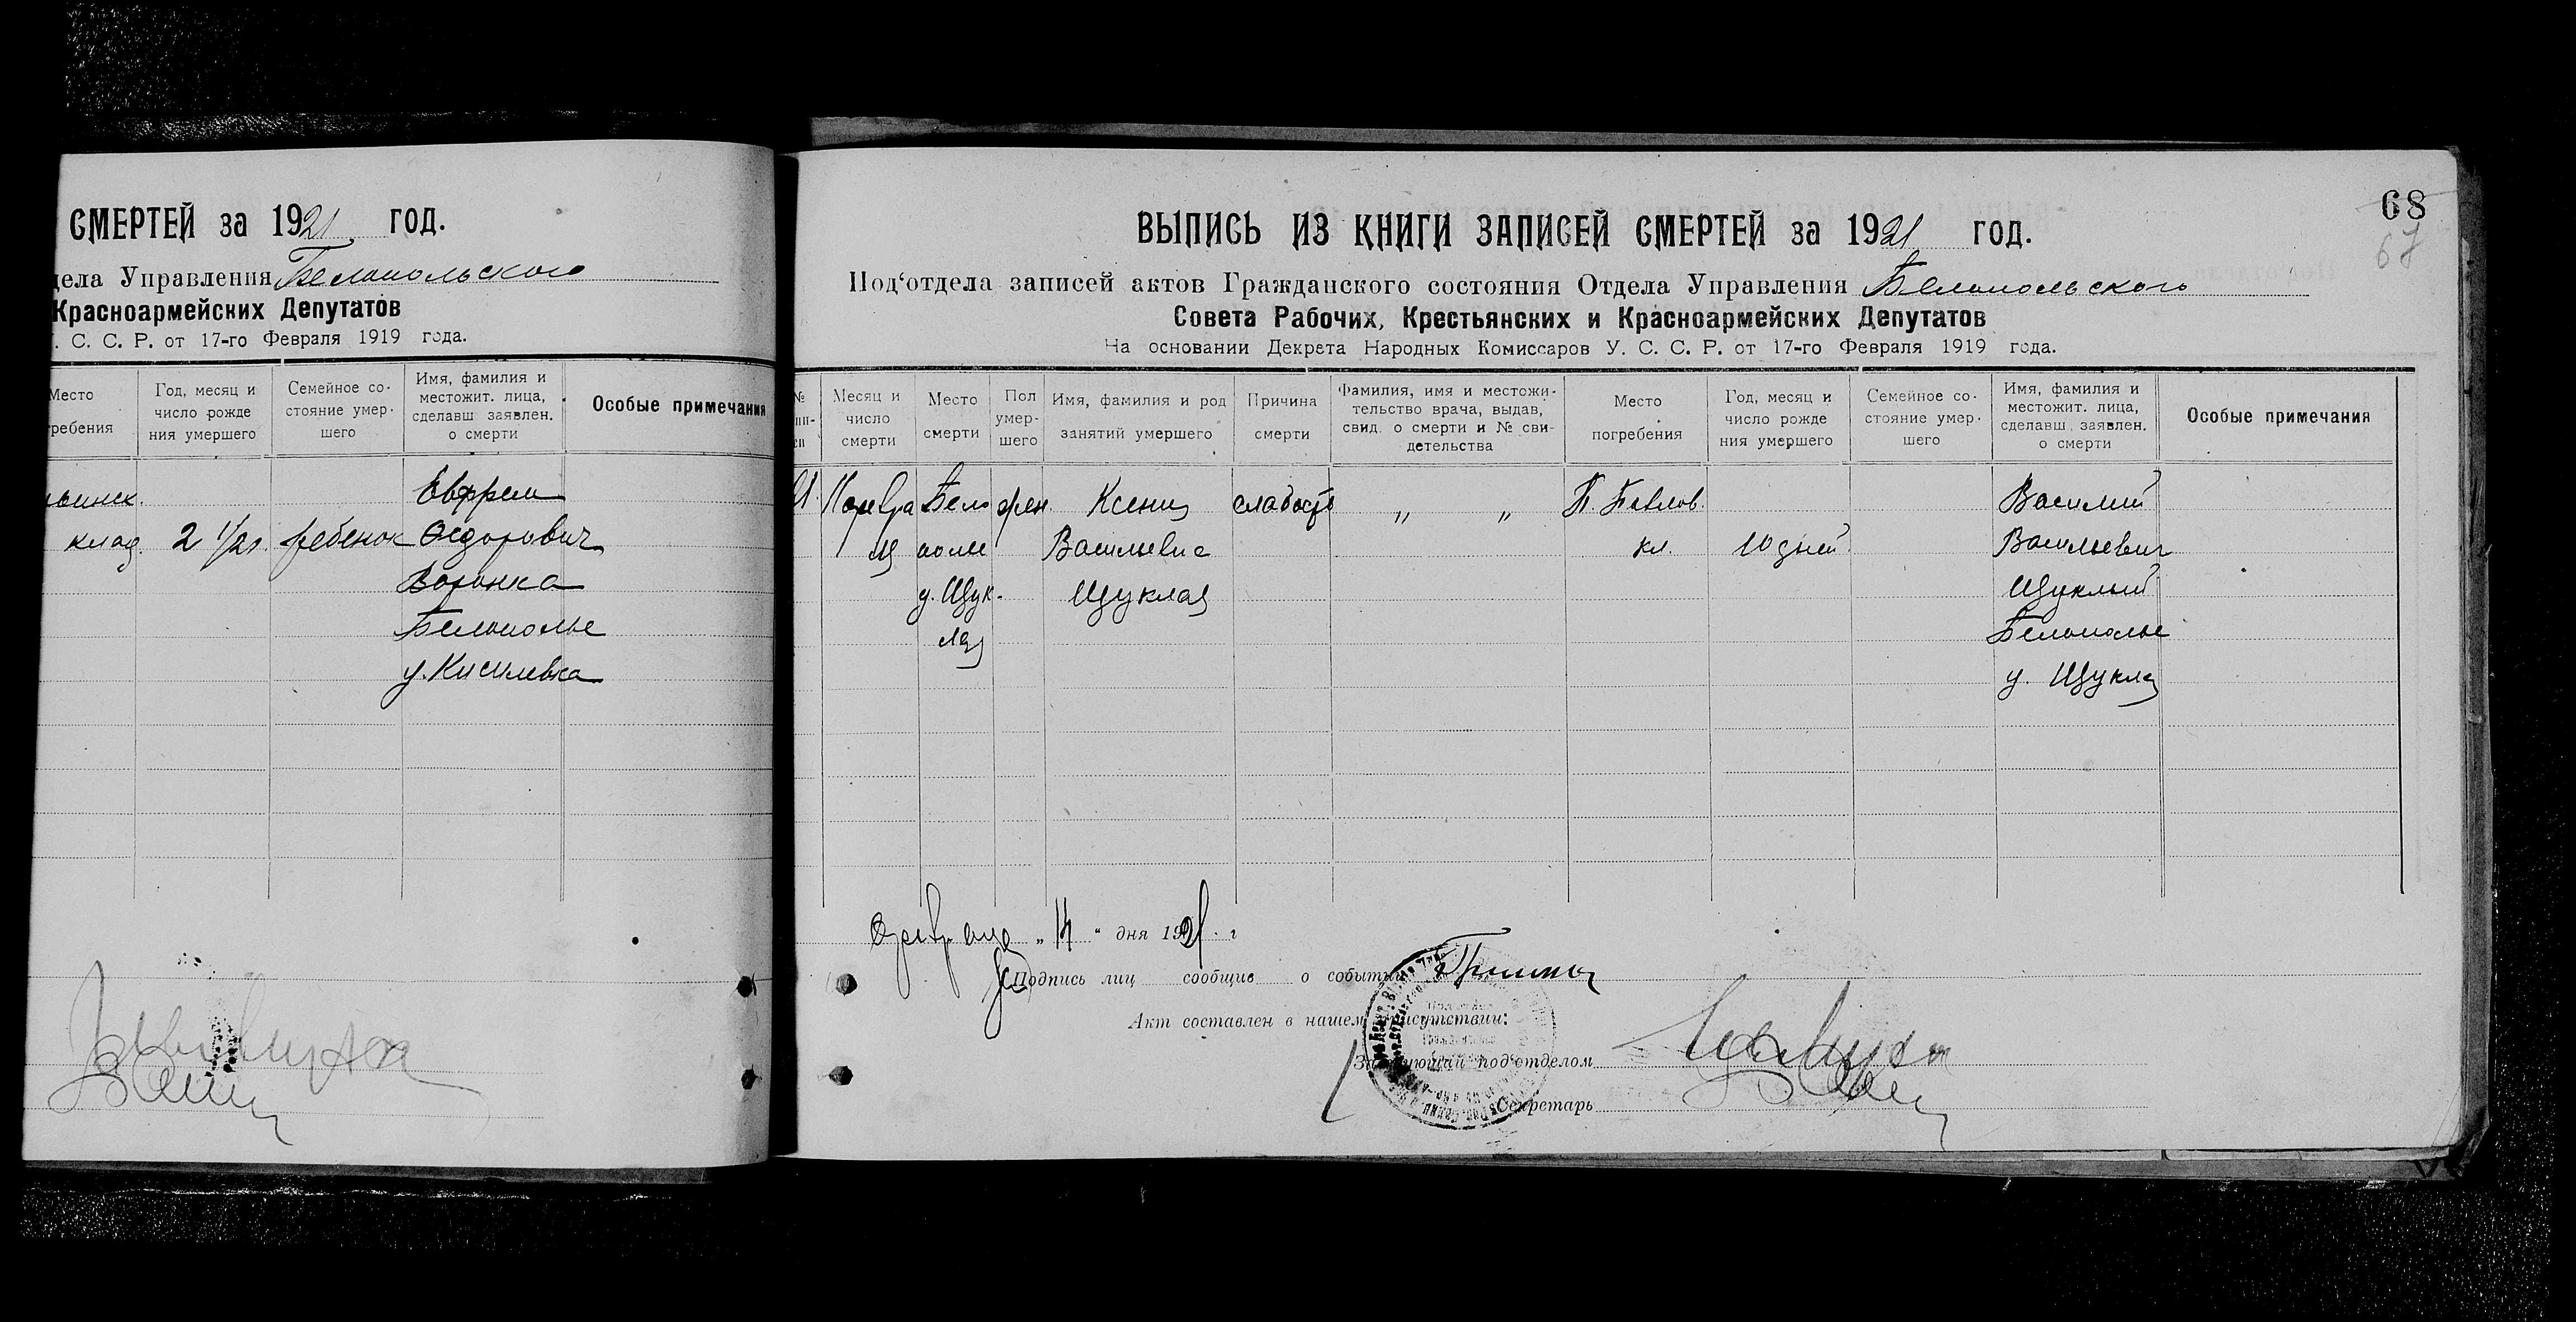 СМЕРТЕЙ за 1921 год.
дела Управления Белопольского
Красноармейских Депутатов
. С. С. Р. от 17-го Февраля 1919 года.
Место
требения
Год, месяц и
число рожде
ния умершего
Семейное со-
стояние умер-
шего
Имя, фамилия и
местожит. лица,
сделавш заявлен.
о смерти
Особые примечания
клад.
2 1/2 г.
ребенок
Евфрем
Федорович
Воронка
Белополье
у. Кисилевка
68
67
ВЫПИСЬ ИЗ КНИГИ ЗАПИСЕЙ СМЕРТЕЙ за 1921 год.
Под‘отдела записей актов Гражданского состояния Отдела Управления Белопольского
Совета Рабочих, Крестьянских и Красноармейских Депутатов
На основании Декрета Народных Комиссаров У. С. С. Р. от 17-го Февраля 1919 года.
№
Месяц и
число
смерти
Место
смерти
Пол
умер-
шего
Имя, фамилия и род
занятий умершего
Причина
смерти
Фамилия, имя и местожи-
тельство врача, выдав,
свид. о смерти и № сви-
детельства
Место
погребения
Год, месяц и
число рожде
ния умершего
Семейное со-
стояние умер-
шего
Имя, фамилия и
местожит. лица,
сделавш, заявлен.
о смерти
Особые примечания
Бело
полье
у. Щук-
лая
жен.
Ксения
Васильевна
Щуклая
слабость
" "
П. Павлов.
кл.
10 дней
Василий
Васильевич
Щуклый
Белополье
у. Щукла
февраля „14“ дня 1921 г
Подпись лиц сообщив о событии
Акт составлен в нашем присутствии:
Заведующий под‘отделом
Секретарь